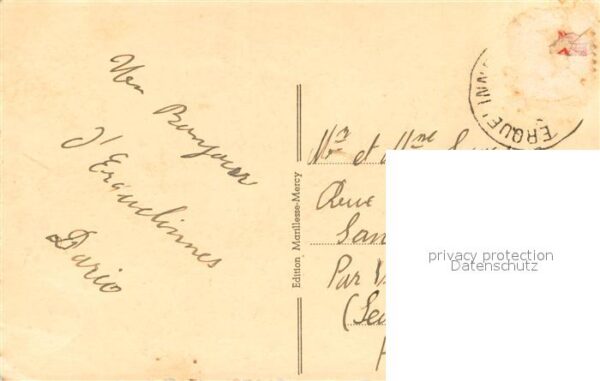 Un Bonjour
d'Erquelinnes
Dario
Edition Marillesse-Mercy
ERQUELINN
Mr et Mme
Rue
San
Par
(Se
privacy protection
Datenschutz